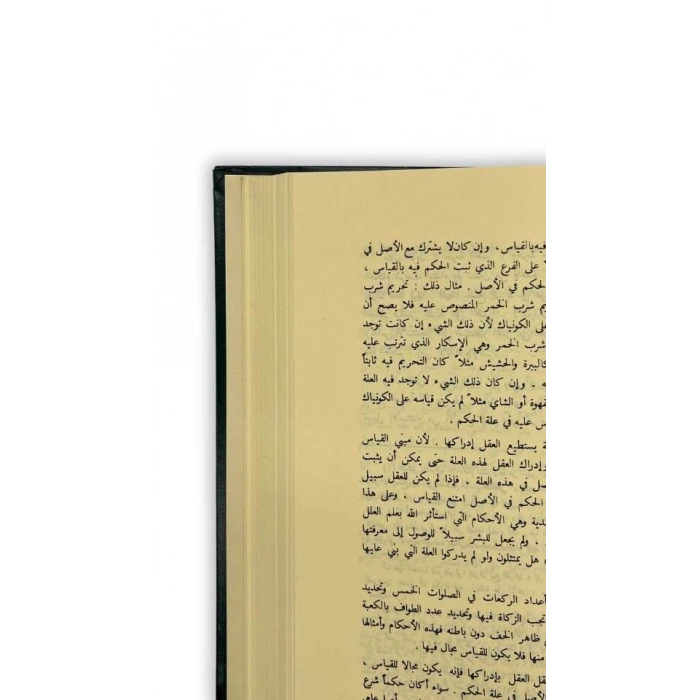 فيه بالقياس ، وإن كان لا يشترك مع الأصل في
على الفرع الذي ثبت الحكم فيه بالقياس ،
الحكم في الأصل . مثال ذلك : تحريم شرب
شرب الخمر المنصوص عليه فلا يصح أن
على الكونياك لأن ذلك الشيء إن كانت توجد
شرب الخمر وهي الإسكار الذي تترتب عليه
كالبيرة والحشيش مثلاً كان التحريم فيه ثابتاً
. وإن كان ذلك الشيء لا توجد فيه العلة
أو الشاي مثلاً لم يكن قياسه على الكونياك
عليه في علة الحكم .
يستطيع العقل إدراكها . لأن مبني القياس
وإدراك العقل لهذه العلة حتى يمكن أن يثبت
في هذه العلة ، فإذا لم يكن للعقل سبيل
الحكم في الأصل امتنع القياس ، وعلى هذا
وهي الأحكام التي استأثر الله بعلم العلل
، ولم يجعل للبشر سبيلاً للوصول إلى معرفتها
هل يمتثلون ولو لم يدركوا العلة التي بني عليها
أعداد الركعات في الصلوات الخمس وتحديد
تجب الزكاة فيها وتحديد عدد الطواف بالكعبة
ظاهر الخف دون باطنه فهذه الأحكام وأمثالها
منها فلا يكون للقياس مجال فيها .
العقل بإدراكها فإنه يكون مجالا للقياس ،
في علة الحكم . سواء أكان حكماً شرع